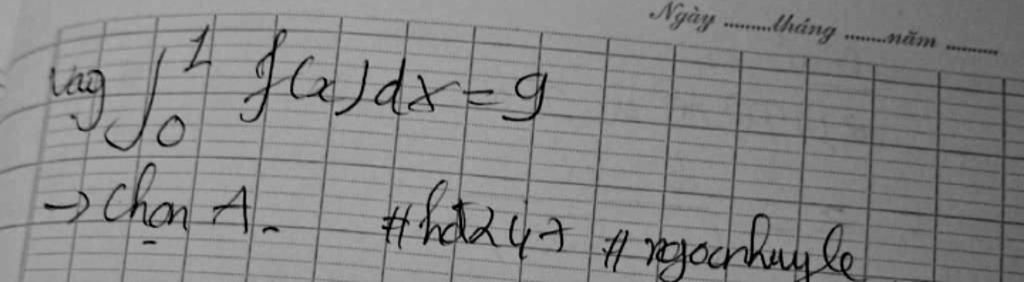 Ngày .........tháng ........năm ..........
Vậy ∫₀¹ f(x)dx = 9
→ Chọn A.
#hd247 #ngocnhuyle